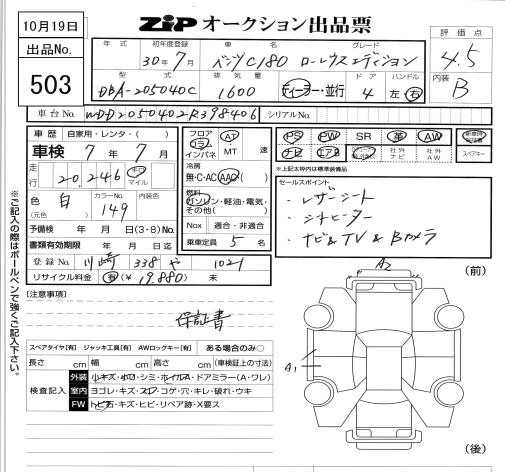 10月19日
ZIP オークション出品票
出品No.
503
年式
初年度登録
車名
グレード
評価点
30年7月
ベンツC180 ローレウスエディション
4.5
型式
排気量
ドア
ハンドル
内装
DBA-205040C
1600
ディーラー・並行
4
左・右
B
車台No.
WDD2050402R398406
シリアルNo.
車歴
自家用・レンタ・( )
車検 7年7月
走行
20,246
キロ
マイル
色
白
(元色)
カラーNo.
149
内装色
予備検 年 月 日(3・8)No.
書類有効期限 年 月 日迄
登録No.
川崎 338 や 1021
リサイクル料金 有(¥19.880) 未
フロア
コラム
インパネ
AT
MT
速
冷房
無・C・AC・AAC
燃料
ガソリン・軽油・電気・
その他( )
Nox
適合・非適合
乗車定員 5 名
PS
PW
SR
革
AW
ナビ
エアB
社外ナビ
社外AW
スペアキー
※上記太枠内は標準装備品
セールスポイント
・レザーシート
・シートヒーター
・ナビ&TV&Bカメラ
[注意事項]
保証書
スペアタイヤ[有] ジャッキ工具[有] AWロックキー[有] ある場合のみ○
長さ cm 幅 cm 高さ cm (車検証上の寸法)
検査記入
外装 小キズ・小凹・シミ・ホイルA・ドアミラー(A・ワレ)
室内 ヨゴレ・キズ・スレ・コゲ・穴・キレ・破れ・ウキ
FW トビ石・キズ・ヒビ・リペア跡・X要ス
A2
(前)
A1
(後)
※ご記入の際はボールペンで強くご記入下さい。